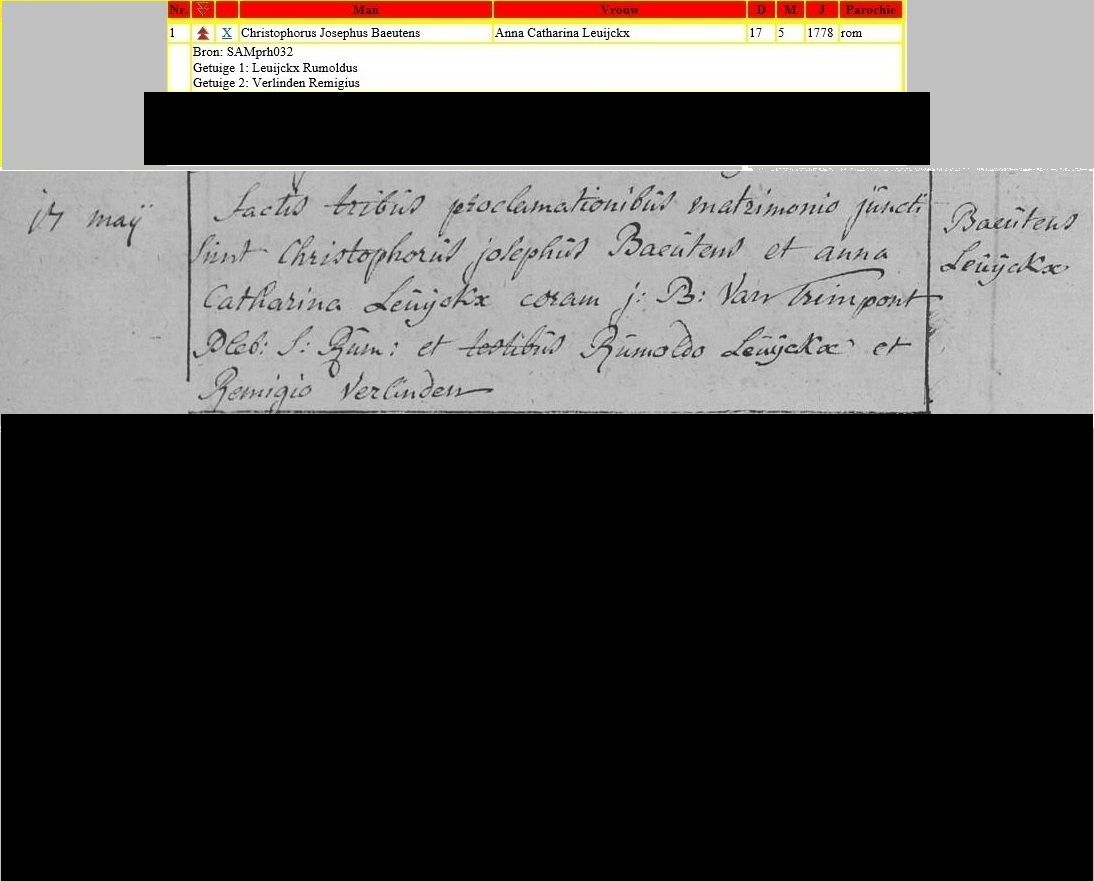 Nr. Man Vrouw D M J Parochie
1 X Christophorus Josephus Baeutens Anna Catharina Leuijckx 17 5 1778 rom
Bron: SAMprh032
Getuige 1: Leuijckx Rumoldus
Getuige 2: Verlinden Remigius
17 maÿ
factis tribus proclamationibus matrimonio juncti
sunt Christophorus josephus Baeutens et anna
Catharina Leuijckx coram j: B: Van Trimpont
Pleb: S: Rum: et testibus Rumoldo Leuijckx et
Remigio Verlinden
Baeutens
Leuijckx